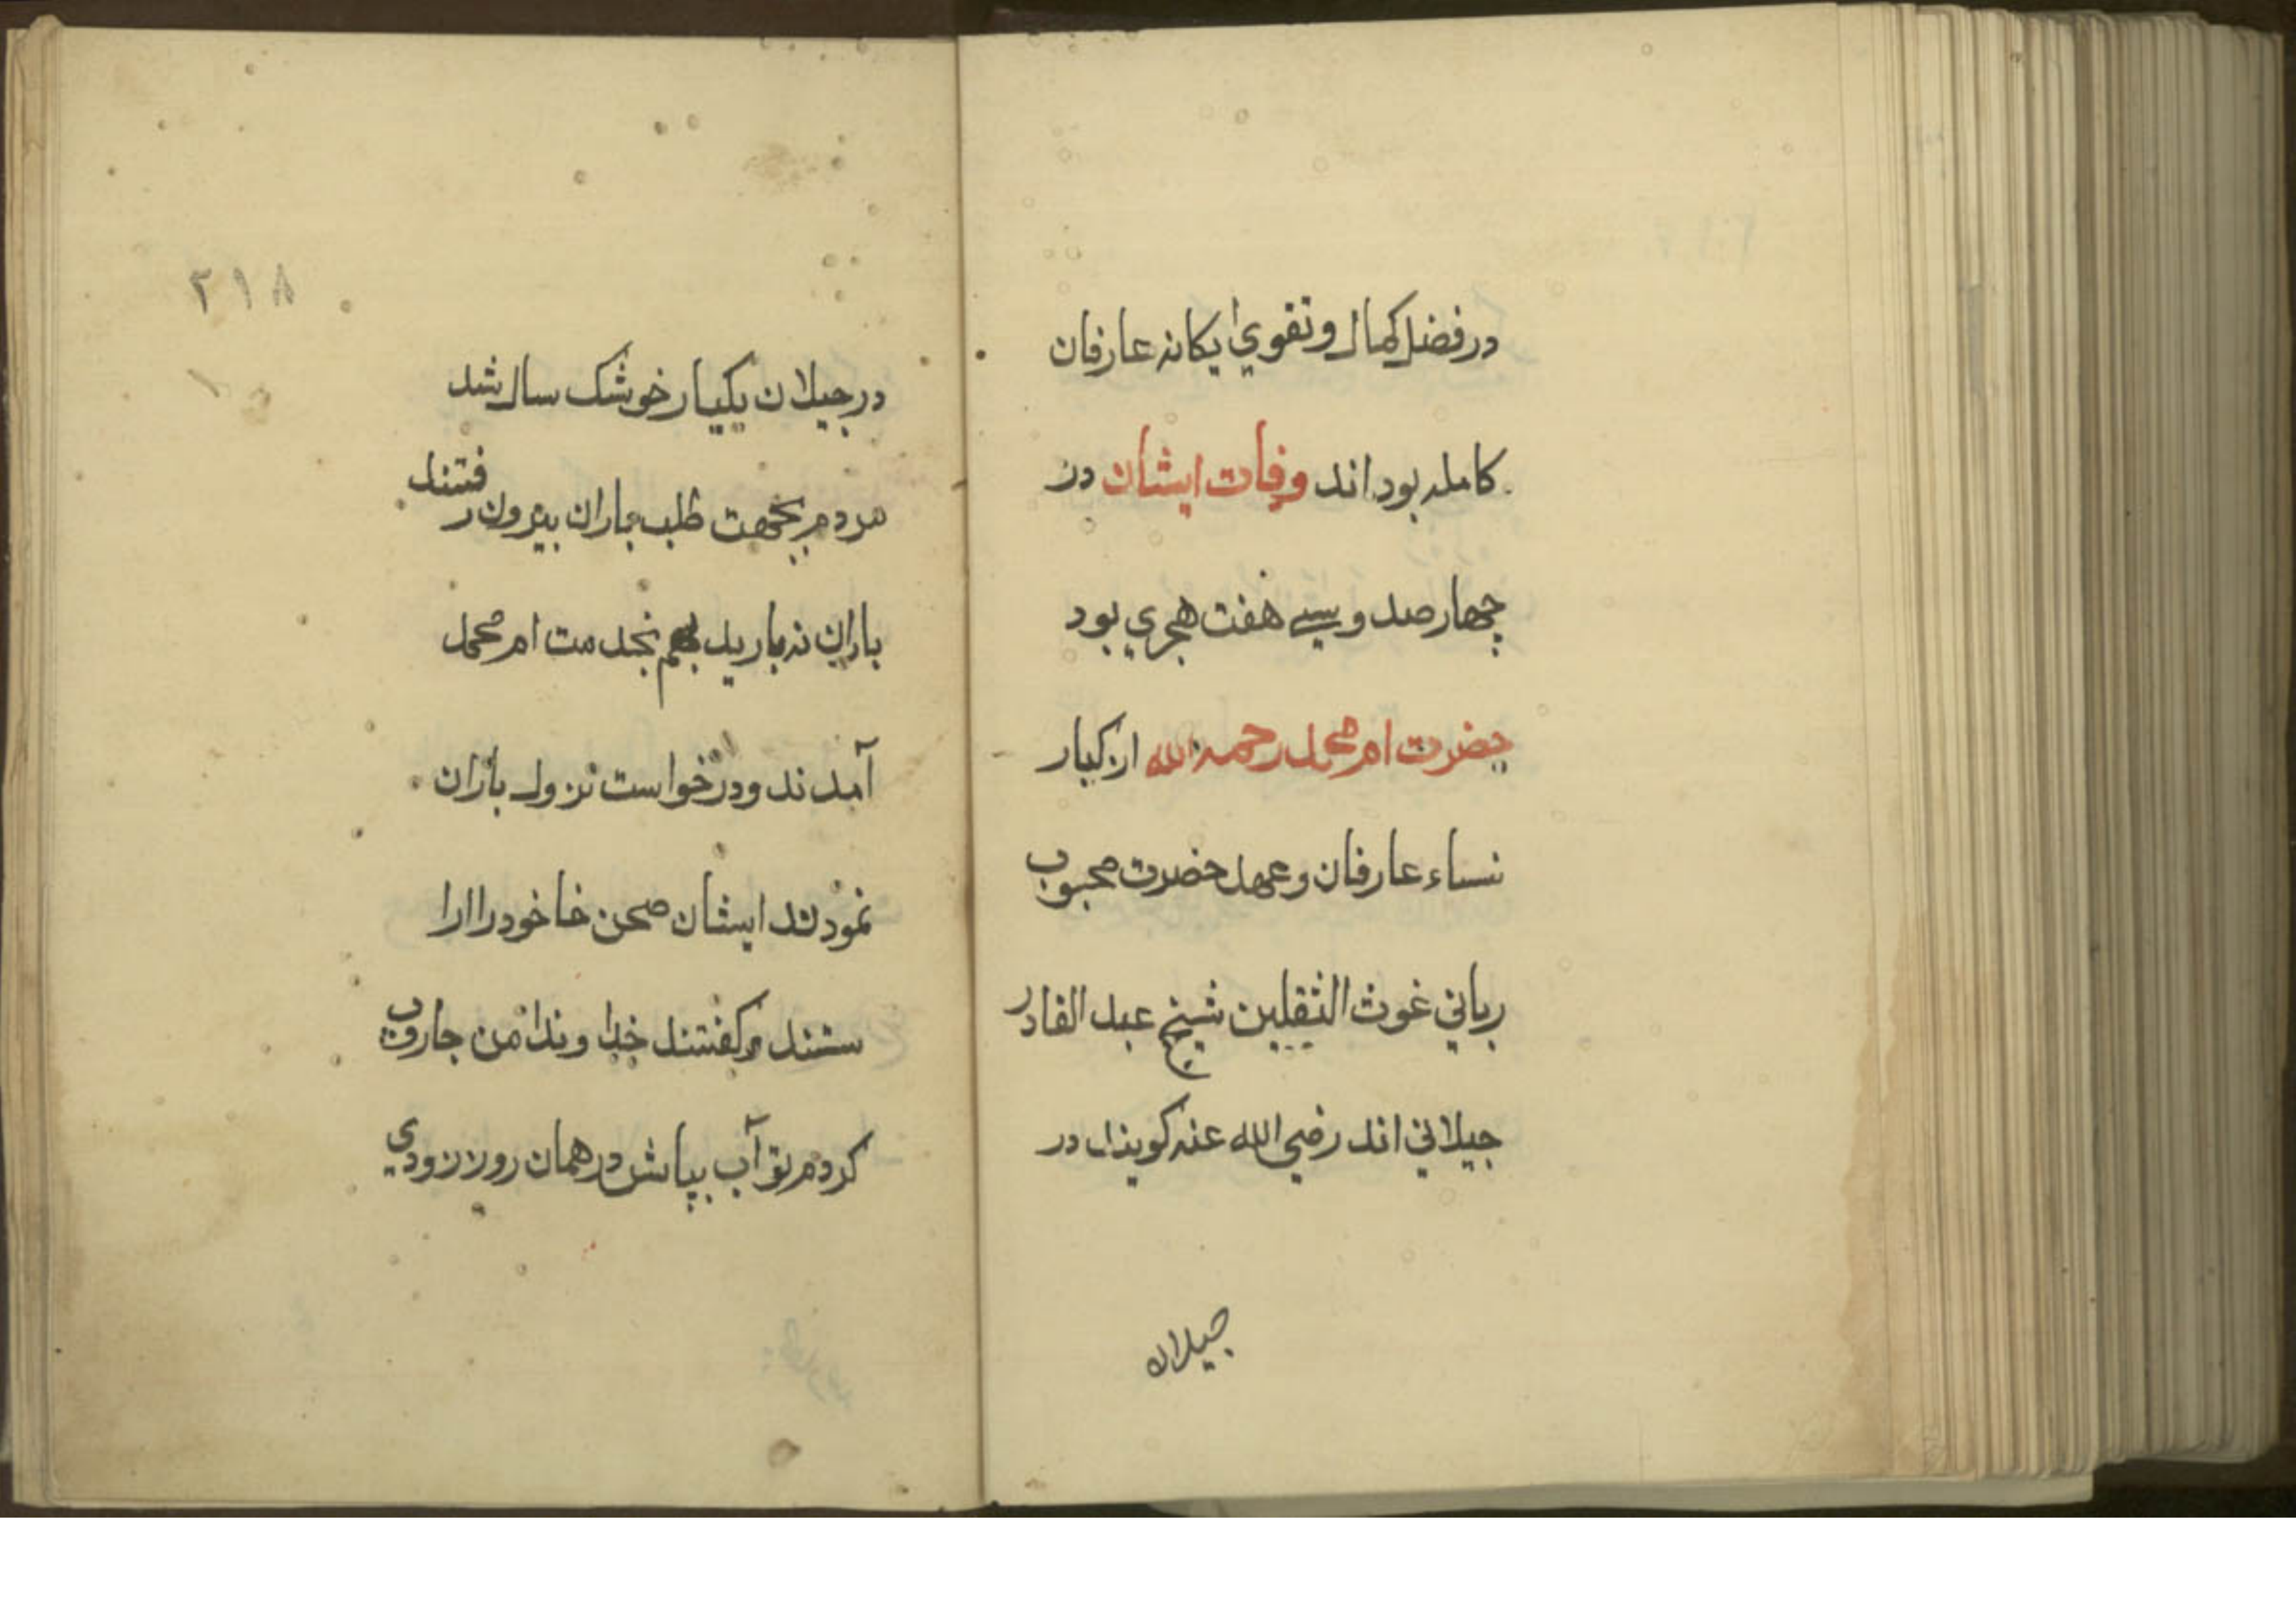 در فضل كمال و تقوي يكانه عارفان
كامله بوده اند وفات ايشان در
چهار صد و سي هفت هجري بود
حضرت ام محمد رحمه الله از كبار
نساء عارفان و عهد حضرت محبوب
رباني غوث الثقلين شيخ عبد القادر
جيلاني اند رضي الله عنه كويند در
جيلان
٢١٨
در جيلان يكبار خوشک سال شد
مردم بجهت طلب باران بيرون رفتند
باران نه باريد بخدمت ام محمد
آمدند و درخواست نزول باران
نمودند ايشان صحن خا خود را ارا
ستند و كفتند خدا وندا من جاروب
كردم تو آب بپاش در همان روز زودي